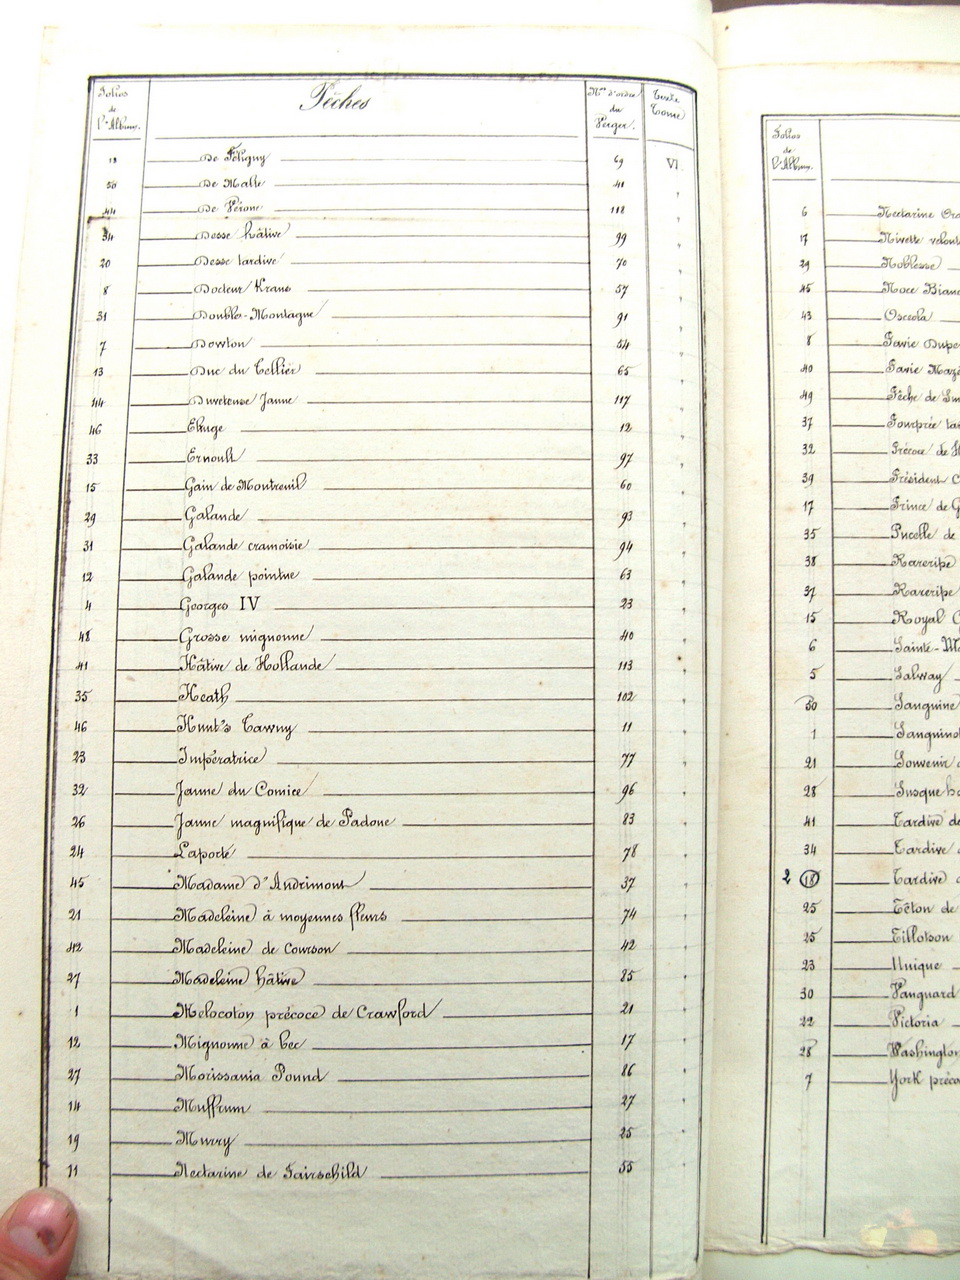 Folios de l'Album. Pêches Nos d'ordre du Verger. Texte Tome
13 De Féligny 69 VI
50 De Malte 41 "
44 De Vérone 118 "
34 Desse hâtive 99 "
20 Desse tardive 70 "
8 Docteur Krans 57 "
31 Double-Montagne 91 "
7 Dowton 54 "
13 Duc du Tellier 65 "
44 Duveteuse Jaune 117 "
46 Elruge 12 "
33 Ernoult 97 "
15 Gain de Montreuil 60 "
29 Galande 93 "
31 Galande cramoisie 94 "
12 Galande pointue 63 "
4 Georges IV 23 "
48 Grosse mignonne 40 "
41 Hâtive de Hollande 113 "
35 Heath 102 "
46 Hunt's Tawny 11 "
23 Impératrice 77 "
32 Jaune du Comice 96 "
26 Jaune magnifique de Padoue 83 "
24 Laporte 78 "
45 Madame d'Andrimont 37 "
21 Madeleine à moyennes fleurs 74 "
42 Madeleine de Courson 42 "
27 Madeleine hâtive 85 "
1 Melocoton précoce de Crawford 21 "
12 Mignonne à bec 17 "
27 Morissania Pound 86 "
14 Muffrum 27 "
19 Murry 25 "
11 Nectarine de Fairschild 55 "
Folios de l'Album.
6 Nectarine Ora
17 Nivette velout
29 Noblesse
45 Noce Bianc
43 Osceola
8 Pavie Dupe
40 Pavie Maz
49 Pêche de Sm
37 Pourprée tar
32 Précoce de H
39 Président C
17 Prince de G
35 Pucelle de
38 Rareripe
37 Rareripe
15 Royal G
6 Sainte-Ma
5 Salway
30 Sanguine
1 Sanguinol
21 Souvenir
28 Susqueha
41 Tardive de
34 Tardive
2 18 Tardive
25 Têton de
25 Tillotson
23 Unique
30 Vanguard
22 Victoria
28 Washington
7 York préco